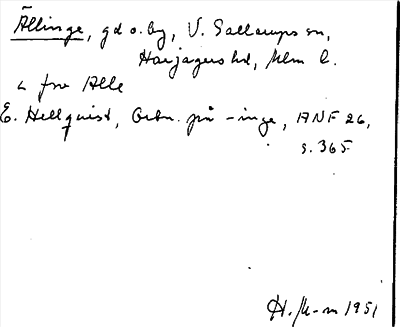 Ällinge, gd o. by, V. Sallerups sn,
Harjagers hd, Mlm l.
< fno Alle
E. Hellquist, Ortn. på -inge, ANF 26,
s. 365.
H. M-m 1951